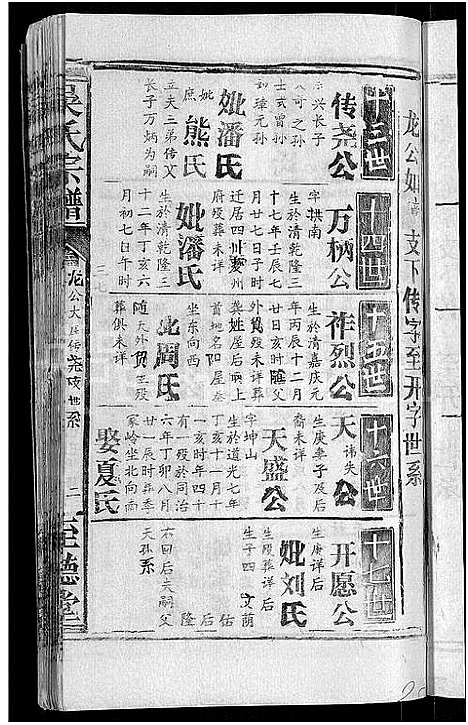 吴氏宗谱
龙公如
支下传字至开字世系
十三世
传尧公
兴长子
之孙
元孙
妣潘氏
妣熊氏
立夫三弟传文
长子万炳为嗣
十四世
万柄公
字拱南
生於清乾隆三
十七年壬辰七
月廿七日子时
迁居四川夔州
府殁葬未详
妣潘氏
生於清乾隆三
十二年丁亥六
月初七日午时
十五世
祚烈公
生於清嘉庆元
年丙辰十二月
廿日亥时随父
外贸殁未详葬
龚姓屋后嘴上
首地名阳屋
坐东向西
妣周氏
随夫外贸
葬俱未详
十六世
天讳失公
生庚妻子及后
裔未详
天盛公
字坤山
生於道光七年
丁亥十一月十
一亥时年四十
有一殁於同治
六年丁卯八月
廿一辰时葬李
家岭坐北向南
娶夏氏
十七世
开愿公
生庚详后
妣刘氏
生殁葬详后
生子四
文荫
佑
后
隆
不回后夫嗣父
天孙系
二